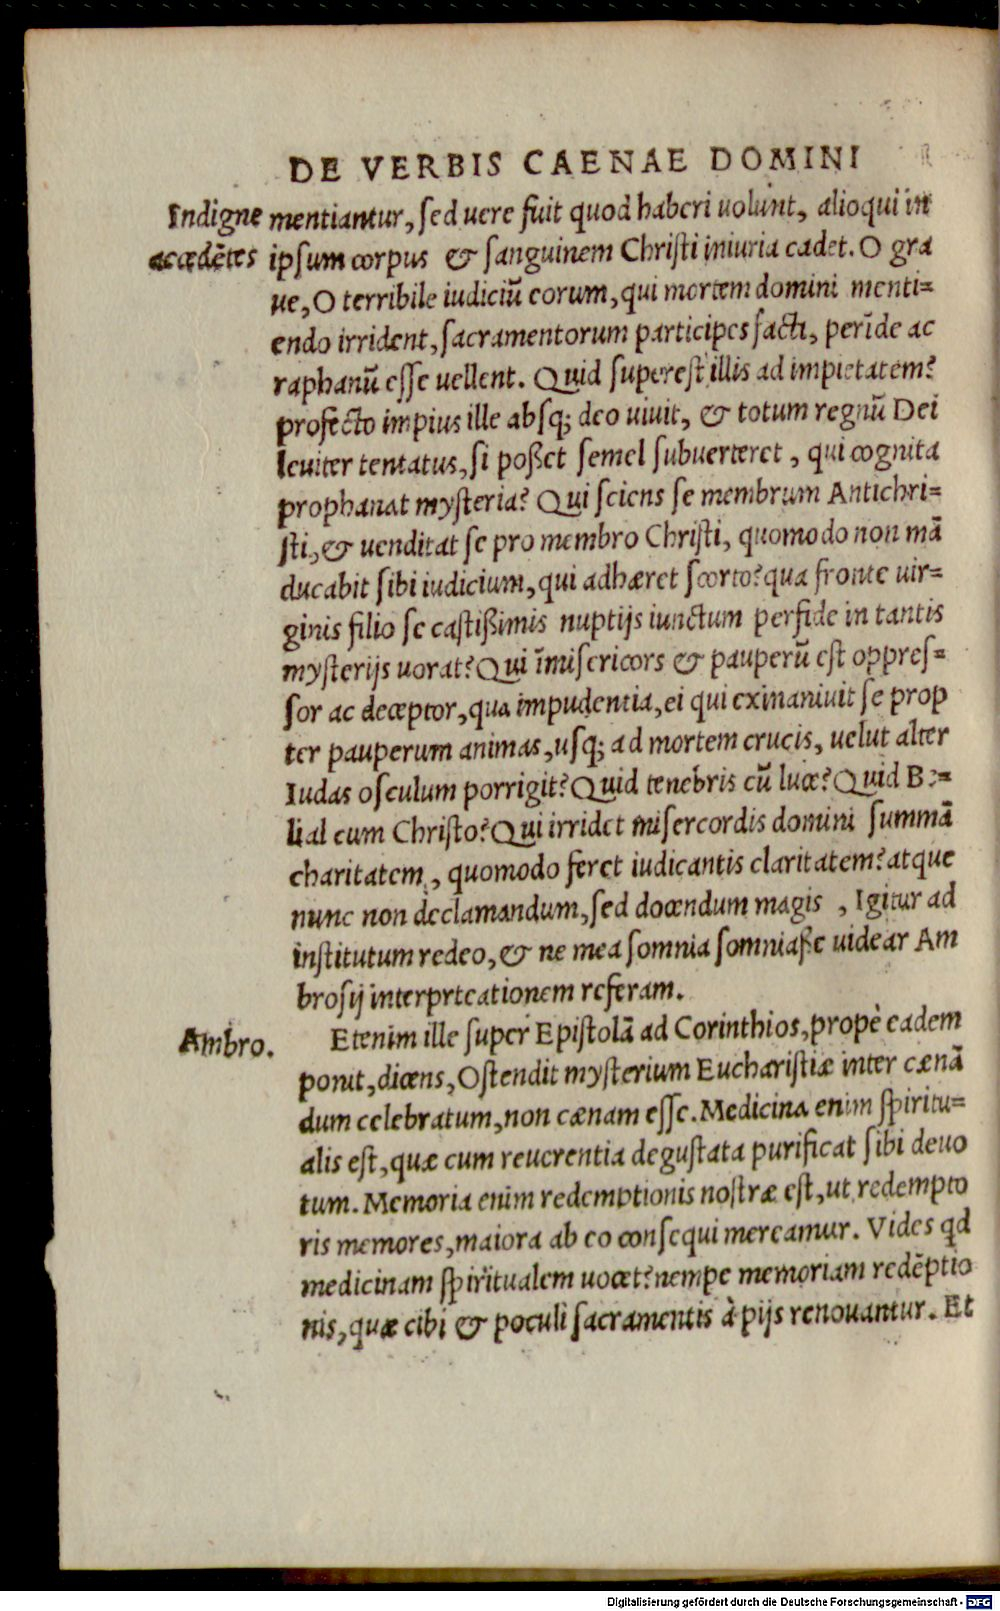 DE VERBIS CAENAE DOMINI
Indigne mentiantur, sed uere fuit quod haberi uolunt, alioqui in
accedẽtes ipsum corpus & sanguinem Christi iniuria cadet. O gra
ue, O terribile iudiciũ eorum, qui mortem domini menti=
endo irrident, sacramentorum participes facti, perĩde ac
raphanũ esse uellent. Quid superest illis ad impietatem?
profecto impius ille absq; deo uiuit, & totum regnũ Dei
leuiter tentatus, si poßet semel subuerteret, qui cognita
prophanat mysteria? Qui sciens se membrum Antichri=
sti, & uenditat se pro membro Christi, quomodo non mã
ducabit sibi iudicium, qui adhæret scorto? qua fronte uir=
ginis filio se castißimis nuptijs iunctum perfide in tantis
mysterijs uorat? Qui ĩmisericors & pauperũ est oppres=
sor ac deceptor, qua impudentia, ei qui exinaniuit se prop
ter pauperum animas, usq; ad mortem crucis, uelut alter
Iudas osculum porrigit? Quid tenebris cũ luce? Quid Be=
lial cum Christo? Qui irridet misercordis domini summã
charitatem, quomodo feret iudicantis claritatem? atque
nunc non declamandum, sed docendum magis, Igitur ad
institutum redeo, & ne mea somnia somniaße uidear Am
brosij interprteationem referam.
Ambro. Etenim ille super Epistolã ad Corinthios, propè eadem
ponit, dicens, Ostendit mysterium Eucharistiæ inter cænã
dum celebratum, non cænam esse. Medicina enim spiritu=
alis est, quæ cum reuerentia degustata purificat sibi deuo
tum. Memoria enim redemptionis nostræ est, ut redempto
ris memores, maiora ab eo consequi mereamur. Vides qd
medicinam spiritualem uocet? nempe memoriam redẽptio
nis, quæ cibi & poculi sacramentis à pijs renouantur. Et
Digitalisierung gefördert durch die Deutsche Forschungsgemeinschaft - DFG